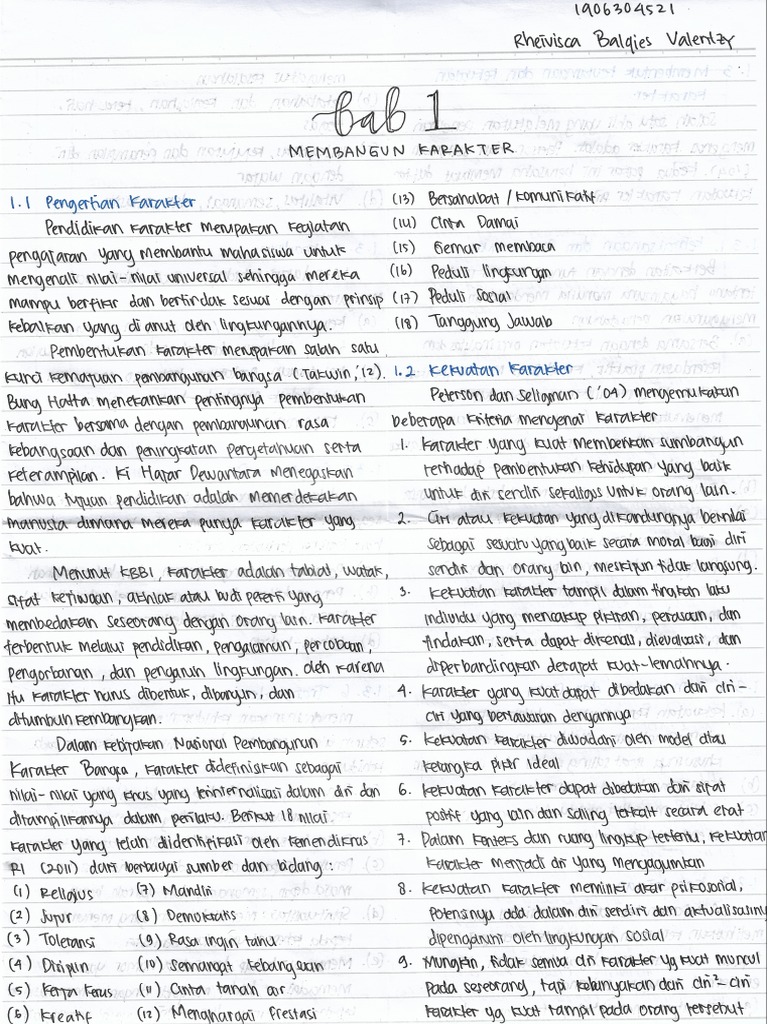 1906304521
Rheivisca Balqies Valentzy
bab 1
MEMBANGUN KARAKTER
1.1 Pengertian Karakter
Pendidikan karakter merupakan kegiatan
pengajaran yang membantu mahasiswa untuk
mengenali nilai-nilai universal sehingga mereka
mampu berfikir dan bertindak sesuai dengan prinsip
kebaikan yang dianut oleh lingkungannya.
Pembentukan karakter merupakan salah satu
kunci kemajuan pembangunan bangsa (Takwin,'12).
Bung Hatta menekankan pentingnya pembentukan
karakter bersama dengan pembangunan rasa
kebangsaan dan peningkatan pengetahuan serta
keterampilan. Ki Hajar Dewantara menegaskan
bahwa tujuan pendidikan adalah memerdekakan
manusia dimana mereka punya karakter yang
kuat.
Menurut KBBI, karakter adalah tabiat, watak,
sifat kejiwaan, akhlak atau budi pekerti yang
membedakan seseorang dengan orang lain. Karakter
terbentuk melalui pendidikan, pengalaman, percobaan,
pengorbanan, dan pengaruh lingkungan. Oleh karena
itu karakter harus dibentuk, dibangun, dan
ditumbuh kembangkan.
Dalam kebijakan Nasional Pembangunan
Karakter Bangsa, karakter didefinisikan sebagai
nilai-nilai yang khas yang terinternalisasi dalam diri dan
ditampilkannya dalam perilaku. Berikut 18 nilai
karakter yang telah diidentifikasi oleh Kemendiknas
RI (2011) dari berbagai sumber dan bidang:
(1) Religius
(2) Jujur
(3) Toleransi
(4) Disiplin
(5) Kerja Keras
(6) Kreatif
(7) Mandiri
(8) Demokratis
(9) Rasa ingin tahu
(10) Semangat kebangsaan
(11) Cinta tanah air
(12) Menghargai Prestasi
(13) Bersahabat / Komunikatif
(14) Cinta Damai
(15) Gemar membaca
(16) Peduli lingkungan
(17) Peduli Sosial
(18) Tanggung Jawab
1.2 Kekuatan Karakter
Peterson dan Seligman ('04) mengemukakan
beberapa kriteria mengenai karakter
1. Karakter yang kuat memberikan sumbangan
terhadap pembentukan kehidupan yang baik
untuk diri sendiri sekaligus untuk orang lain.
2. Ciri atau kekuatan yang dikandungnya bernilai
sebagai sesuatu yang baik secara moral bagi diri
sendiri dan orang lain, meskipun tidak langsung.
3. Kekuatan karakter tampil dalam tingkah laku
individu yang mencakup pikiran, perasaan, dan
tindakan, serta dapat dikenali, dievaluasi, dan
diperbandingkan derajat kuat-lemahnya.
4. Karakter yang kuat dapat dibedakan dari ciri-
ciri yang berlawanan dengannya
5. Kekuatan karakter diwadahi oleh model atau
kerangka pikir ideal
6. Kekuatan karakter dapat dibedakan dari sifat
positif yang lain dan saling terkait secara erat
7. Dalam konteks dan ruang lingkup tertentu, kekuatan
karakter menjadi ciri yang menggagumkan
8. Kekuatan karakter memiliki akar psikososial,
potensinya ada dalam diri sendiri dan aktualisasinya
dipengaruhi oleh lingkungan sosial
9. Mungkin, tidak semua ciri karakter yg kuat muncul
pada seseorang, tapi kebanyakan dari ciri²-ciri
karakter yg kuat tampil pada orang tersebut